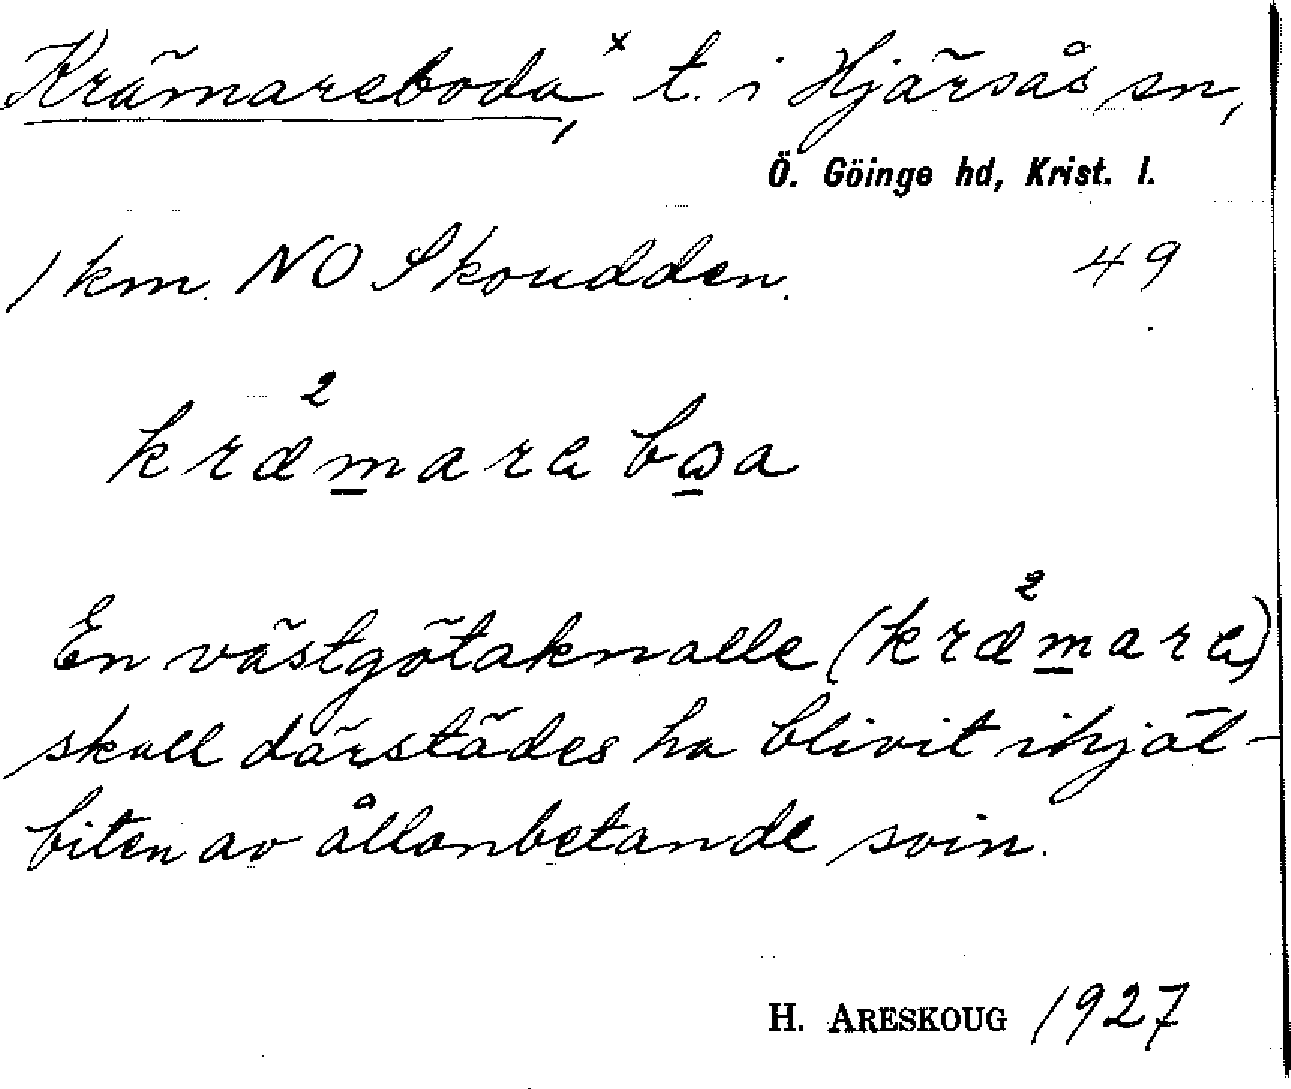 Krämareboda,ˣ t. i Hjärsås sn,
Ö. Göinge hd, Krist. l.
1 km. NO Skoudden. 49
kræ²marɘ bɷa
En västgötaknalle (kræ²marɘ)
skall därstädes ha blivit ihjäl-
biten av ållonbetande svin.
H. ARESKOUG 1927